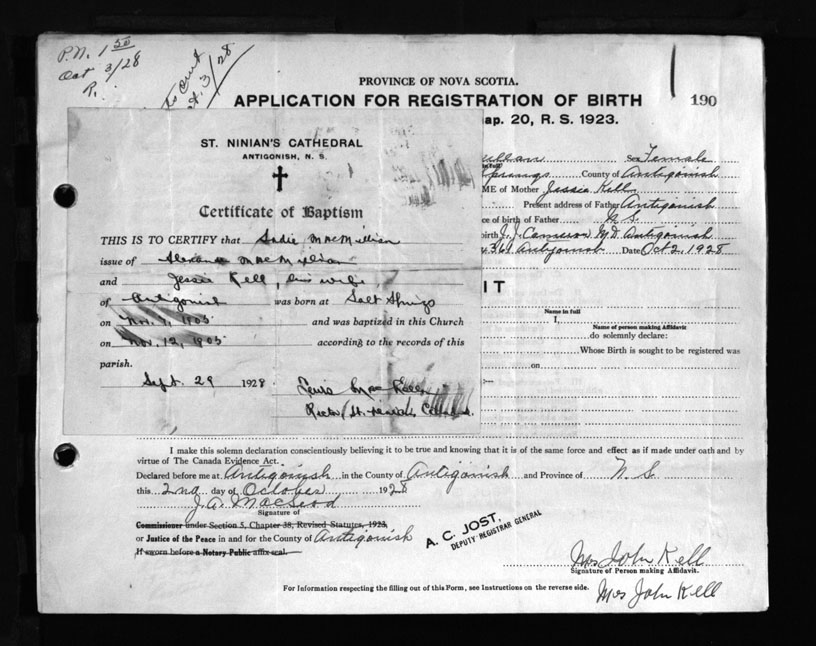 P.N. 1 50
Oct 3/28
R.
3/28
PROVINCE OF NOVA SCOTIA.
APPLICATION FOR REGISTRATION OF BIRTH
190
ap. 20, R. S. 1923.
ST. NINIAN'S CATHEDRAL
ANTIGONISH, N. S.
Certificate of Baptism
THIS IS TO CERTIFY that Sadie MacMillan
issue of MacMillan
and Jessie Kell, his wife,
of Antigonish was born at Salt Springs
on Nov. 9, 1905 and was baptized in this Church
on Nov. 12, 1905 according to the records of this
parish.
Sept. 29 1928
Sex Female
County of Antigonish
ME of Mother Jessie Kell
Present address of Father Antigonish
ce of birth of Father N. S.
J. J. Cameron M.D. Antigonish
361 Antigonish Date Oct 2, 1928
IT
Name in full
I,
Name of person making Affidavit
do solemnly declare:
Whose Birth is sought to be registered was
on
I make this solemn declaration conscientiously believing it to be true and knowing that it is of the same force and effect as if made under oath and by
virtue of The Canada Evidence Act.
Declared before me at Antigonish in the County of Antigonish and Province of N. S.
this 2nd day of October 1928
J. A. MacLeod
Signature of
Commissioner under Section 5, Chapter 38, Revised Statutes, 1923,
or Justice of the Peace in and for the County of Antigonish
If sworn before a Notary Public affix seal.
A. C. JOST,
DEPUTY REGISTRAR GENERAL
Mrs John Kell
Signature of Person making Affidavit.
For Information respecting the filling out of this Form, see Instructions on the reverse side.
Mrs John Kell